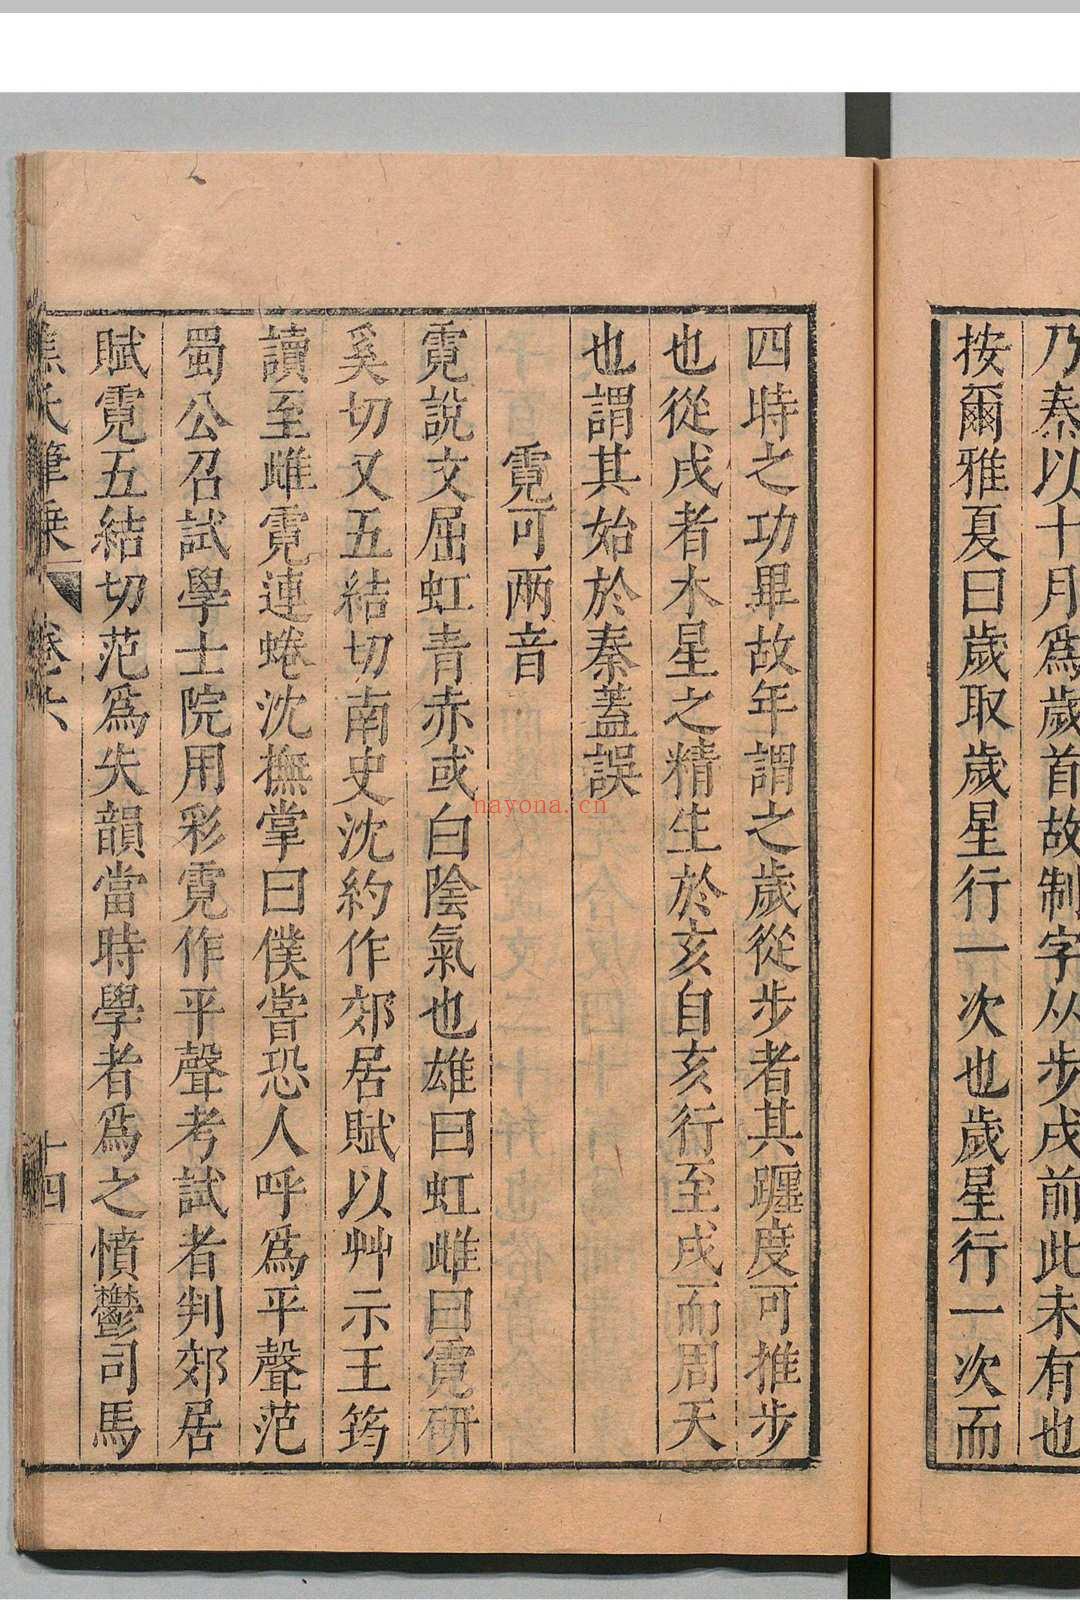 乃秦以十月爲歲首故制字从步戌前此未有也
按爾雅夏曰歲取歲星行一次也歲星行一次而
四時之功畢故年謂之歲從步者其躔度可推步
也從戌者木星之精生於亥自亥行至戌而周天
也謂其始於秦蓋誤
霓可兩音
霓說文屈虹青赤或白陰氣也雄曰虹雌曰霓研
奚切又五結切南史沈約作郊居賦以艸示王筠
讀至雌霓連蜷沈撫掌曰僕嘗恐人呼爲平聲范
蜀公召試學士院用彩霓作平聲考試者判郊居
賦霓五結切范爲失韻當時學者爲之憤鬱司馬
焦氏筆乘 卷六 十四
nayona.cn